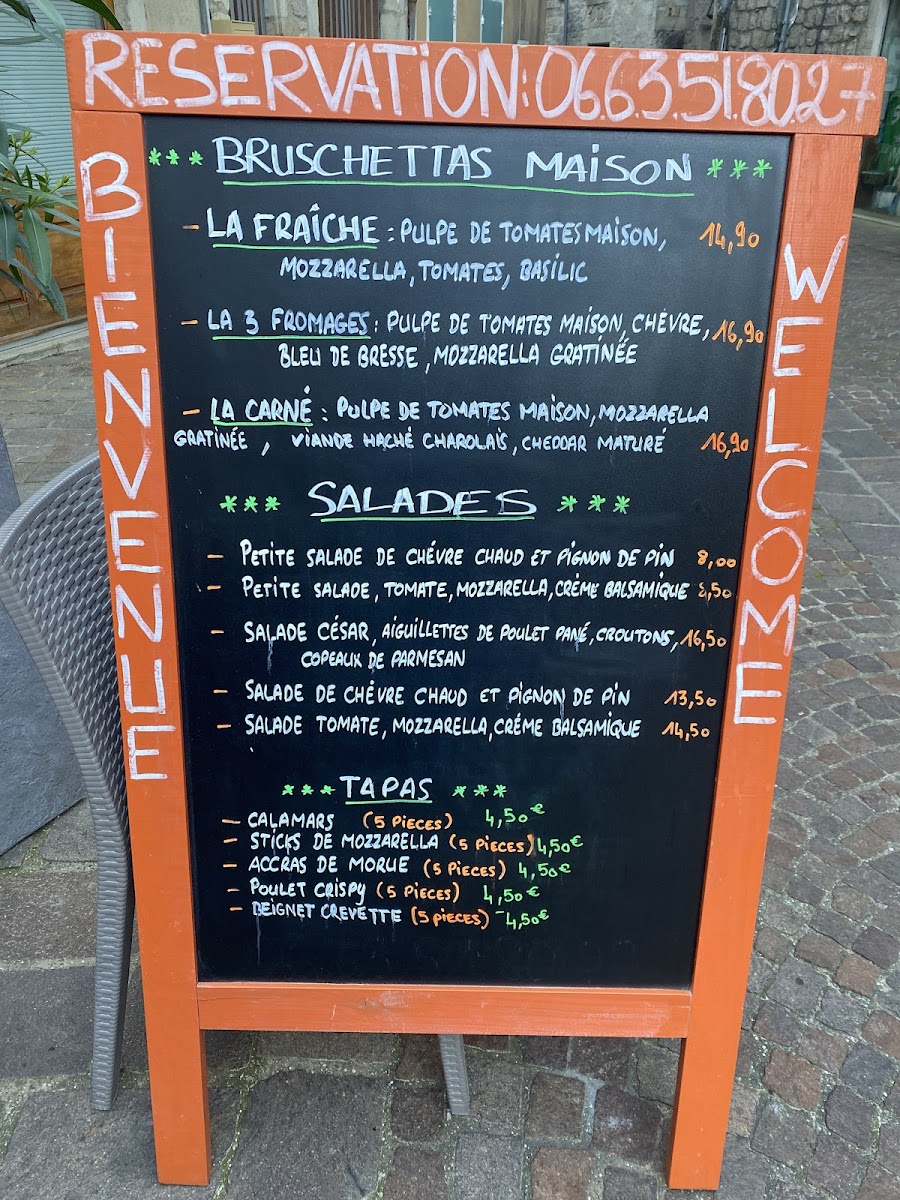 RESERVATION: 06.63.51.80.27
BIENVENUE
WELCOME
*** BRUSCHETTAS MAISON ***
- LA FRAÎCHE : PULPE DE TOMATES MAISON, 14,90
MOZZARELLA, TOMATES, BASILIC
- LA 3 FROMAGES : PULPE DE TOMATES MAISON, CHÈVRE, 16,90
BLEU DE BRESSE, MOZZARELLA GRATINÉE
- LA CARNÉ : PULPE DE TOMATES MAISON, MOZZARELLA
GRATINÉE, VIANDE HACHÉ CHAROLAIS, CHEDDAR MATURÉ 16,90
*** SALADES ***
- PETITE SALADE DE CHÉVRE CHAUD ET PIGNON DE PIN 8,00
- PETITE SALADE, TOMATE, MOZZARELLA, CRÉME BALSAMIQUE 8,50
- SALADE CÉSAR, AIGUILLETTES DE POULET PANÉ, CROUTONS, 16,50
COPEAUX DE PARMESAN
- SALADE DE CHÉVRE CHAUD ET PIGNON DE PIN 13,50
- SALADE TOMATE, MOZZARELLA, CRÉME BALSAMIQUE 14,50
*** TAPAS ***
- CALAMARS (5 PIECES) 4,50€
- STICKS DE MOZZARELLA (5 PIECES) 4,50€
- ACCRAS DE MORUE (5 PIECES) 4,50€
- POULET CRISPY (5 PIECES) 4,50€
- BEIGNET CREVETTE (5 PIECES) 4,50€